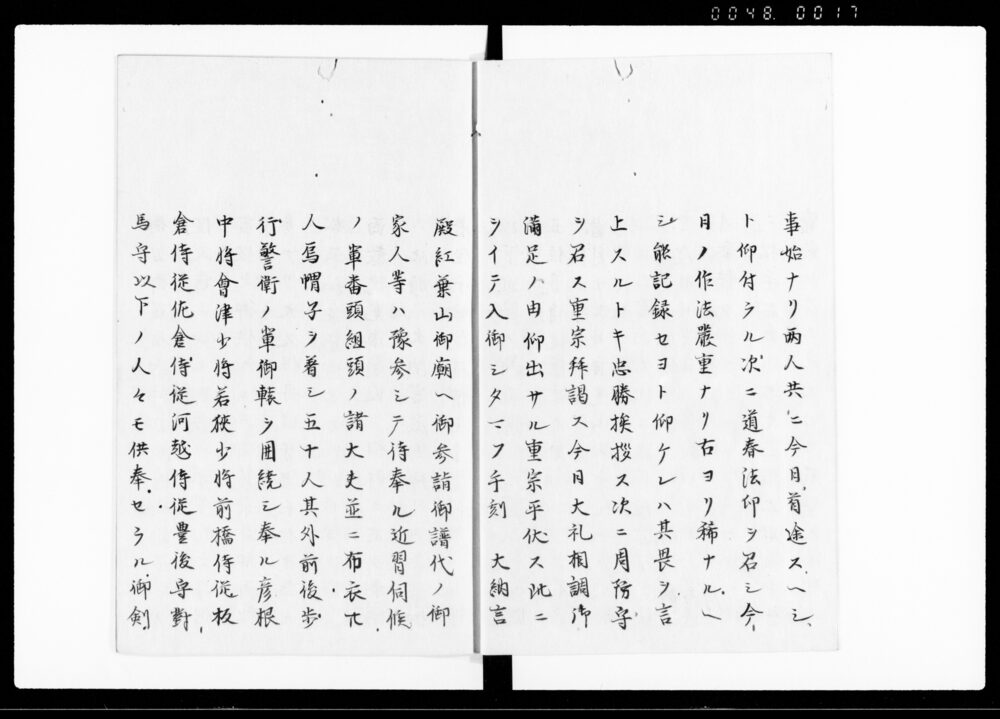 0048.0017
事始ナリ両人共ニ今日首途スヘシ
ト仰付ラル次ニ道春法印ヲ召シ今
日ノ作法嚴重ナリ古ヨリ稀ナルヘ
シ能記録セヨト仰ケレハ其畏ヲ言
上スルトキ忠勝挨拶ス次ニ周防守
ヲ召ス重宗拜謁ス今日大礼相調御
満足ノ由仰出サル重宗平伏ス此ニ
ヲイテ入御シタマフ手刻 大納言
殿紅葉山御廟ヘ御参詣御譜代ノ御
家人等ハ豫参シテ待奉ル近習伺候
ノ軍番頭組頭ノ諸大夫並ニ布衣廿
人烏帽子ヲ着シ五十人其外前後歩
行警衛ノ軍御轅ヲ囲繞シ奉ル彦根
中将會津少将若狹少将前橋侍従板
倉侍従佐倉侍従河越侍従豊後守對
馬守以下ノ人々モ供奉セラル御劍